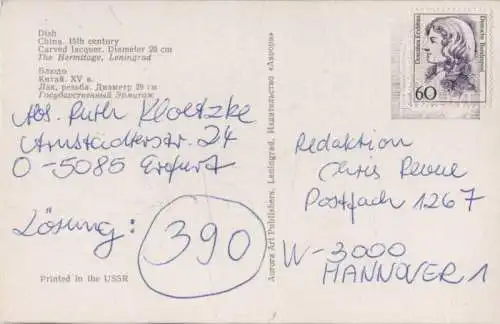 Dish
China. 15th century
Carved lacquer. Diameter 28 cm
The Hermitage, Leningrad
Блюдо
Китай. XV в.
Лак, резьба. Диаметр 28 см
Государственный Эрмитаж
Abs. Ruth Kloetzke
Arnstädterstr. 24
O-5085 Erfurt
Lösung: 390
Printed in the USSR
Aurora Art Publishers. Leningrad. Издательство «Аврора»
Deutsche Bundespost
60
Redaktion
Chris Revue
Postfach 1267
W-3000
HANNOVER 1